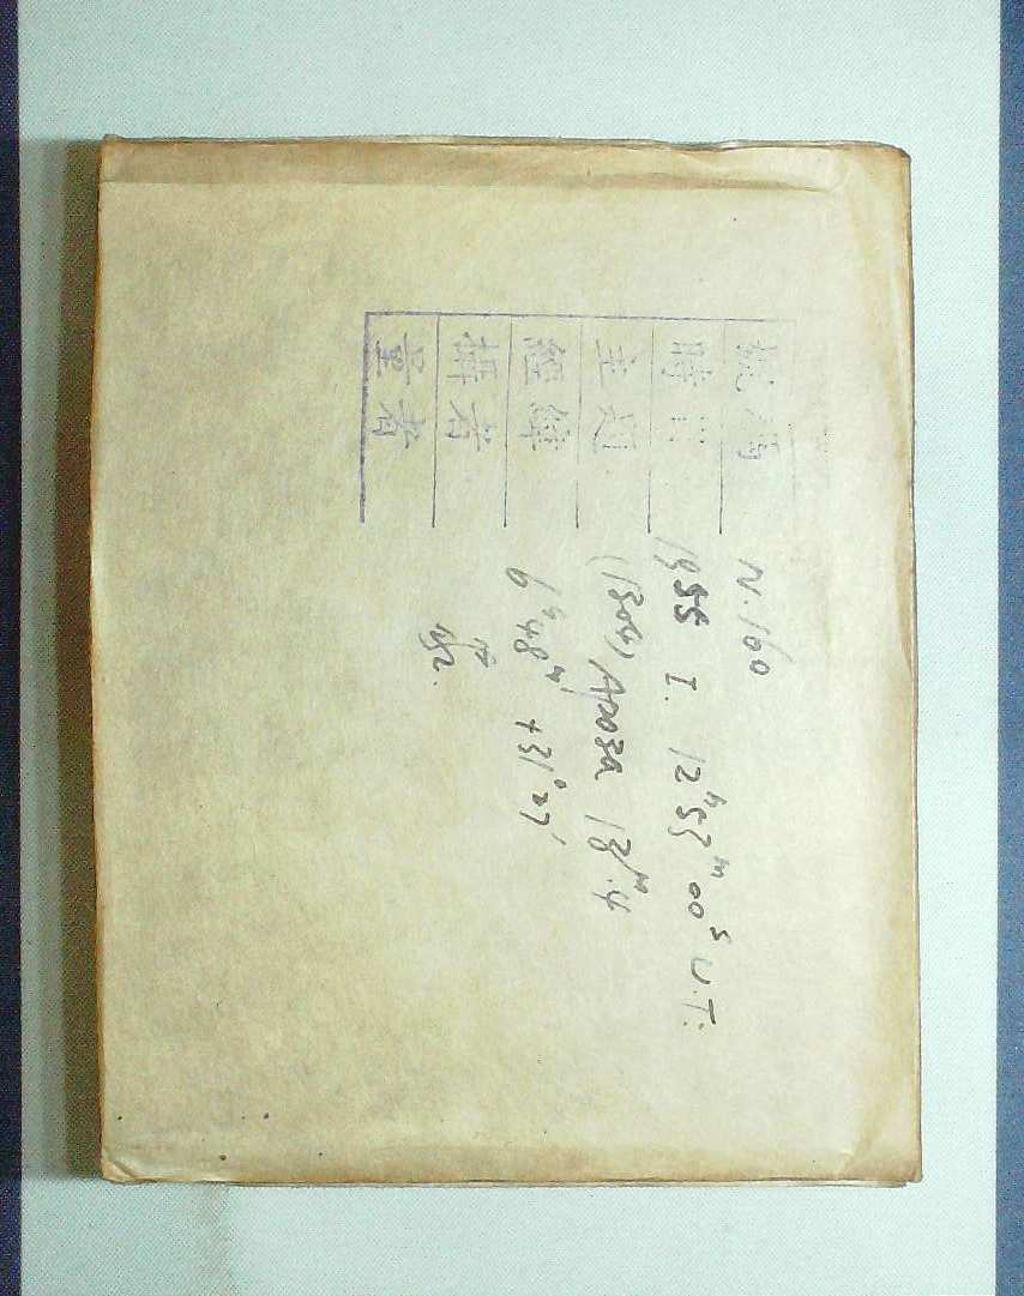 號碼 N.160
時 1955 I. 12ʰ53ᵐ00ˢ U.T.
主 (1304) Arosa 13ᵐ.4
經緯 6ʰ48ᵐ +31°27'
攝者
量者